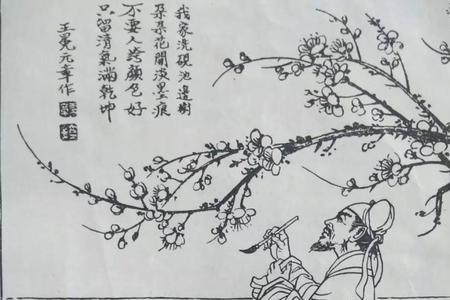 我家洗硯池邊樹
朵朵花開淡墨痕
不要人誇顏色好
只留清氣滿乾坤
王冕元章作